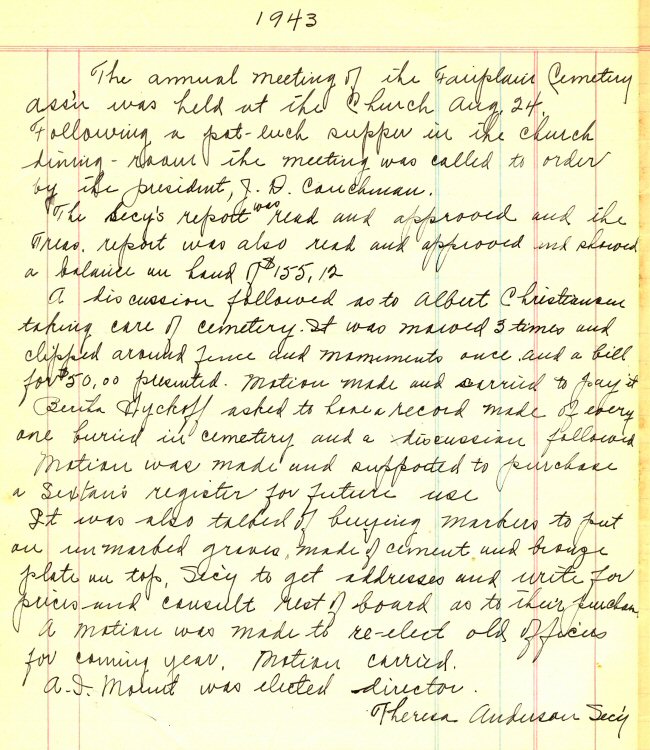 1943
The annual meeting of the Fairplain Cemetery
ass'n was held at the Church Aug. 24.
Following a pot-luck supper in the church
dining-room the meeting was called to order
by the president, J. D. Couchman.
The Secy's report was read and approved and the
Treas. report was also read and approved and showed
a balance on hand of $155.12
A discussion followed as to Albert Christiansen
taking care of cemetery. It was mowed 3 times and
clipped around fence and monuments once and a bill
for $50.00 presented. Motion made and carried to pay it
Bertha Wyckoff asked to have a record made of every
one buried in cemetery and a discussion followed
Motion was made and supported to purchase
a Sextan's register for future use
It was also talked of buying markers to put
on unmarked graves, made of cement and bronze
plate on top. Sec'y to get addresses and write for
prices and consult rest of board as to their purchase.
A motion was made to re-elect old officers
for coming year. Motion carried.
A. D. Mount was elected director.
Theresa Anderson Sec'y